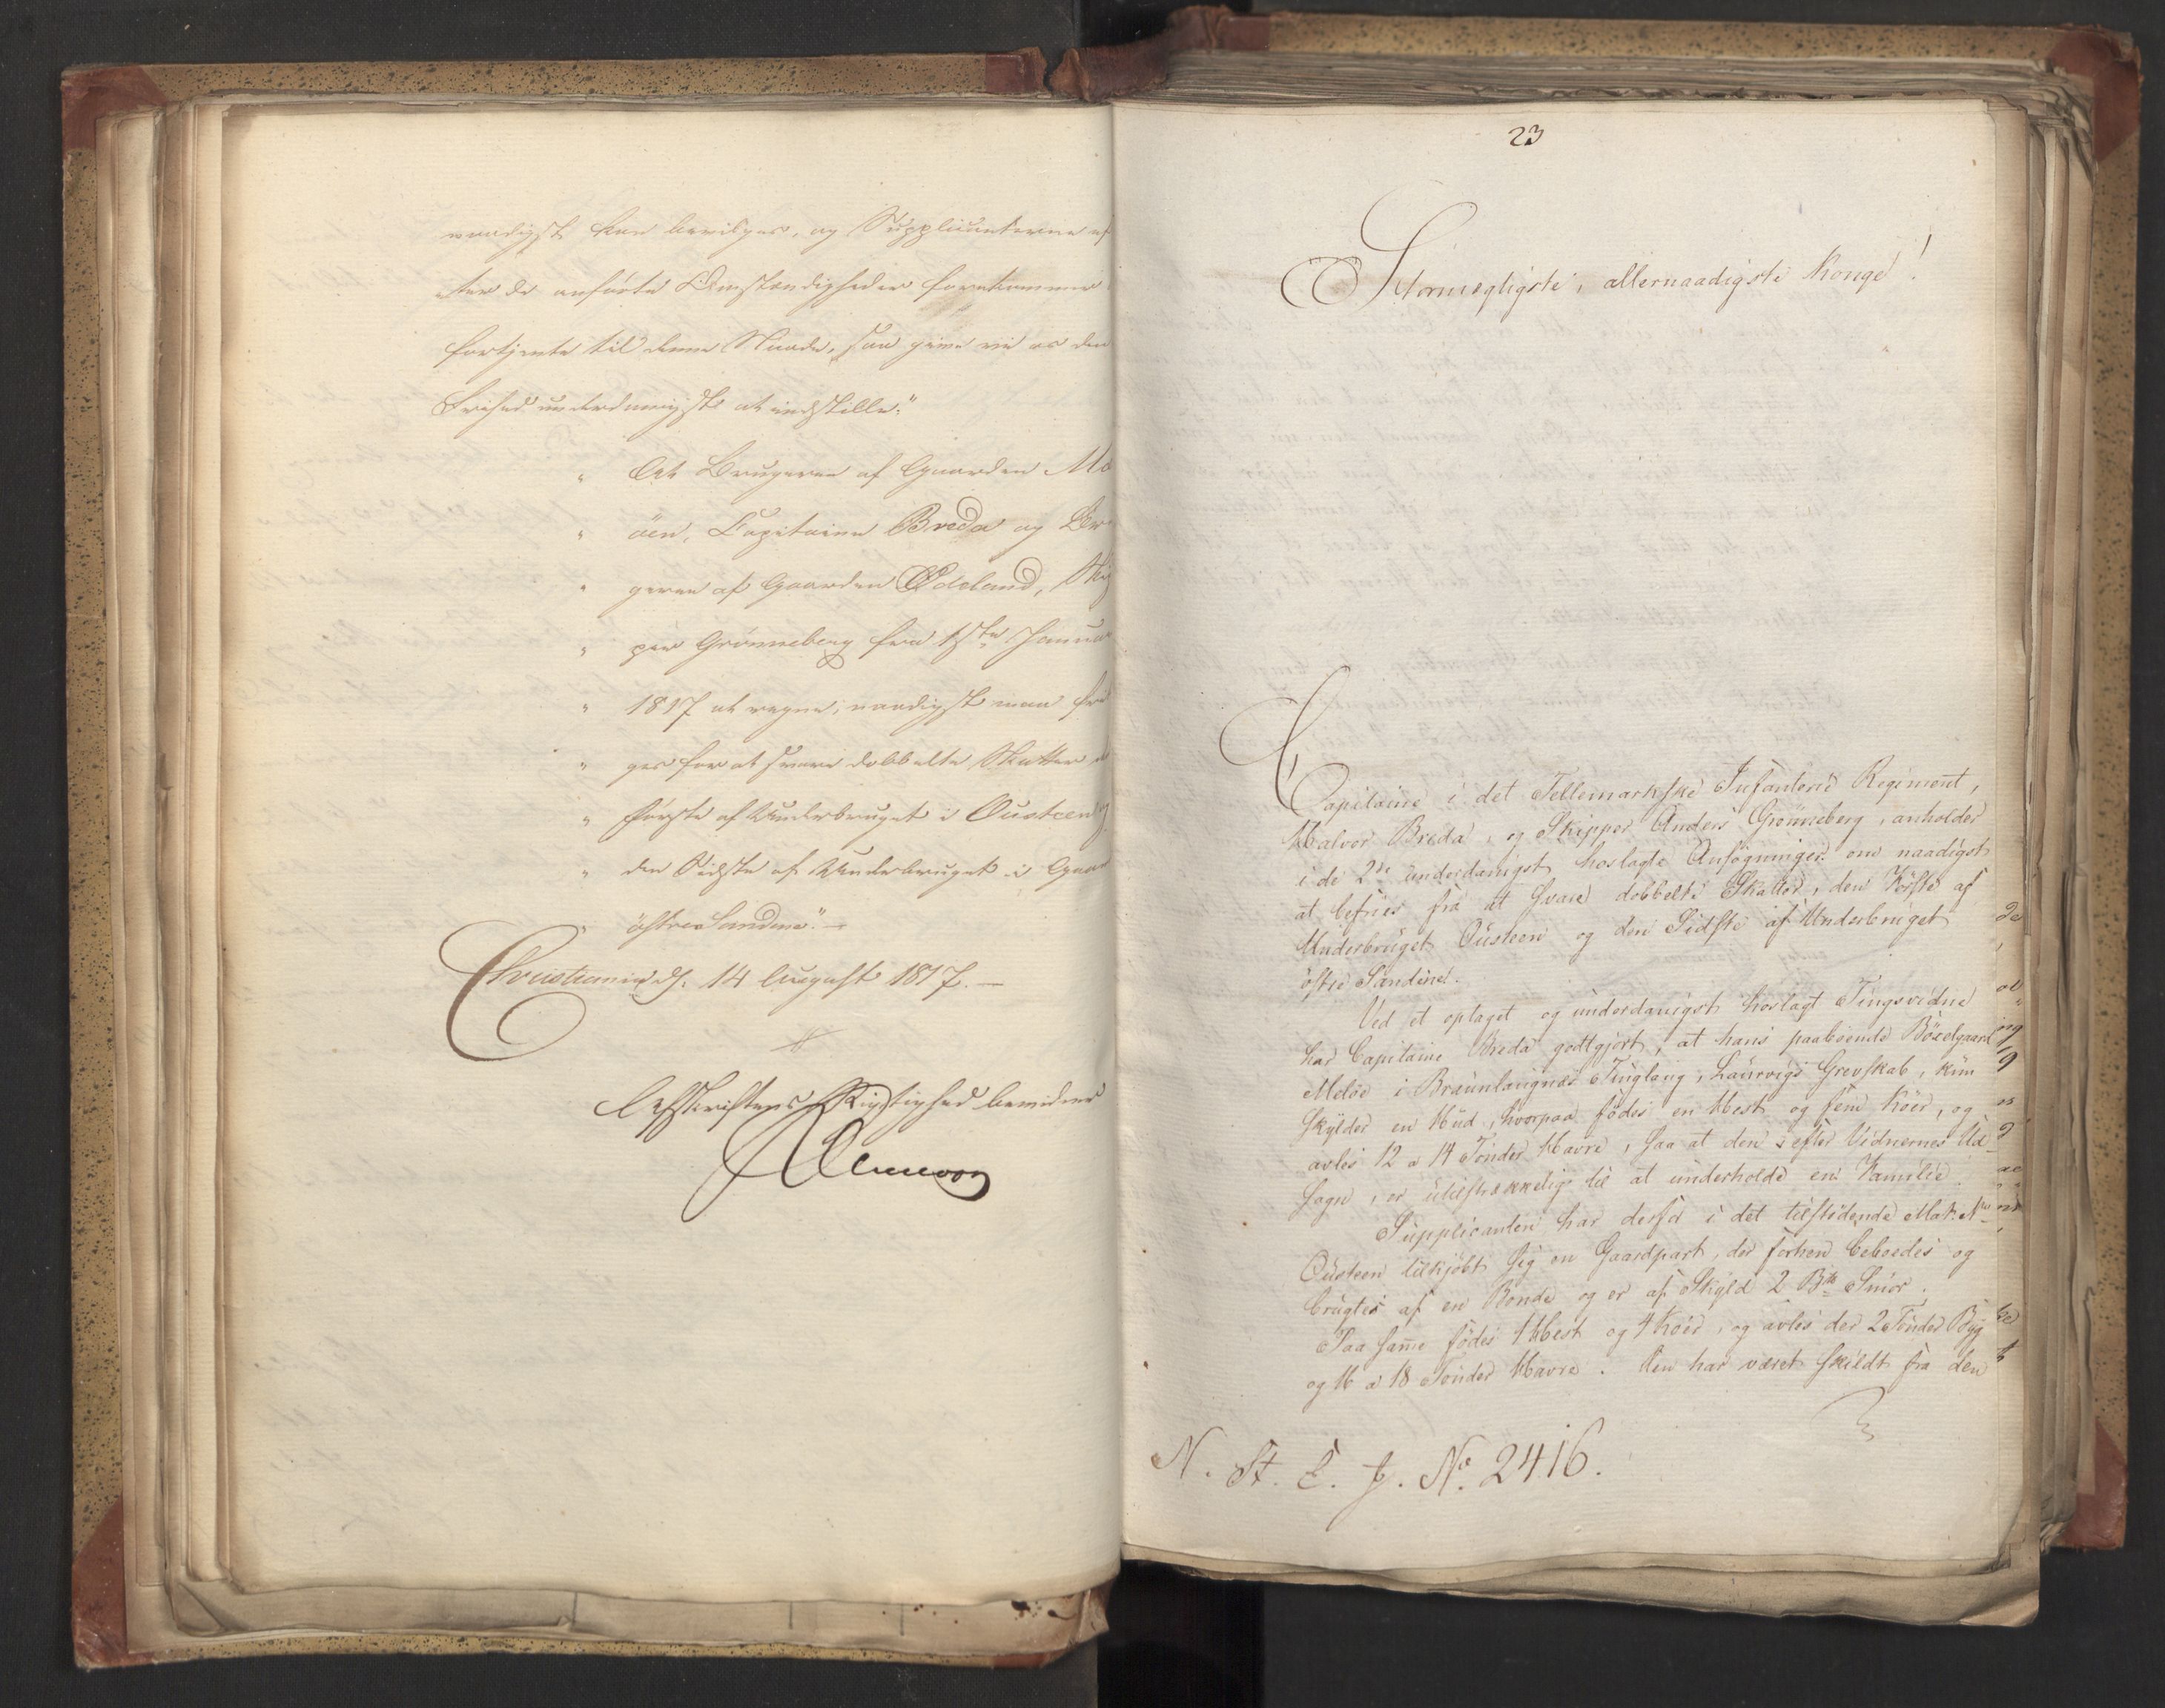 naadigst kan bevilges, og Supplicanterne ef
ter de anførte Omstændigheder forekommer
fortjente til denne Naade, saa give vi os den
Frihed underdanigst at indstille:"
" At Brugeren af Gaarden Me
" öen, Capitaine Breda og Bru
" geren af Gaarden Ödelund, Skip
" per Grönneberg fra 1ste Januar
" 1817 at regne, naadigst maa fri
" ges for at svare dobbelte Skatter, d
" første af Underbruget i Ousteen og
" den Sidste af Underbruget i Gaar
" östre Sandene." —
Christiania d. 14 August 1817. —
Afskriftens Rigtighed bevidner
23
Stormægtigste, allernaadigste Konge!
Capitaine i det Tellemarkske Infanterie Regiment,
Halvor Breda, og Skipper Anders Grönneberg, anholder
i de 2de underdanigst hoslagte Ansögninger om naadigst
at befries fra at svare dobbelte Skatter, den Förste af
Underbruget Ousteen og den Sidste af Underbruget
östre Sandene.
Ved et optaget og underdanigst hoslagt Tingsvidne
har Capitaine Breda godtgjort, at hans paaboende Böxelgaard
Melöe i Braunlaugnæs Tinglaug, Laurvigs Grevskab, kun
skylder en Hud, hvorpaa födes en Hest og fem Köer, og
avles 12 a 14 Tönder Havre, saa at den, efter Vidnernes Ud-
sagn, er utilstrækkelig til at underholde en Familie.
Supplicanten har derfor i det tilstödende Mat: No
Ousteen tilkjöbt sig en Gaardpart, der forhen beboedes og
brugtes af en Bonde og er af Skyld 2 Bd Smör.
Paa samme födes 1 Hest og 4 Köer, og avles der 2 Tönder Byg
og 16 a 18 Tönder Havre. Den har været skildt fra den
N. St. E. J. No. 2416.